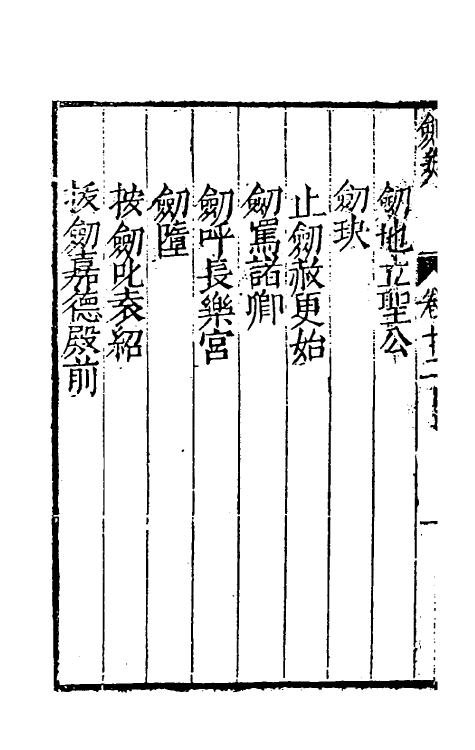 劒地立聖公
劒玦
止劒赦更始
劒罵諸卿
劒呼長樂宮
劒墮
按劒叱袁紹
拔劒嘉德殿前
卷十二
一